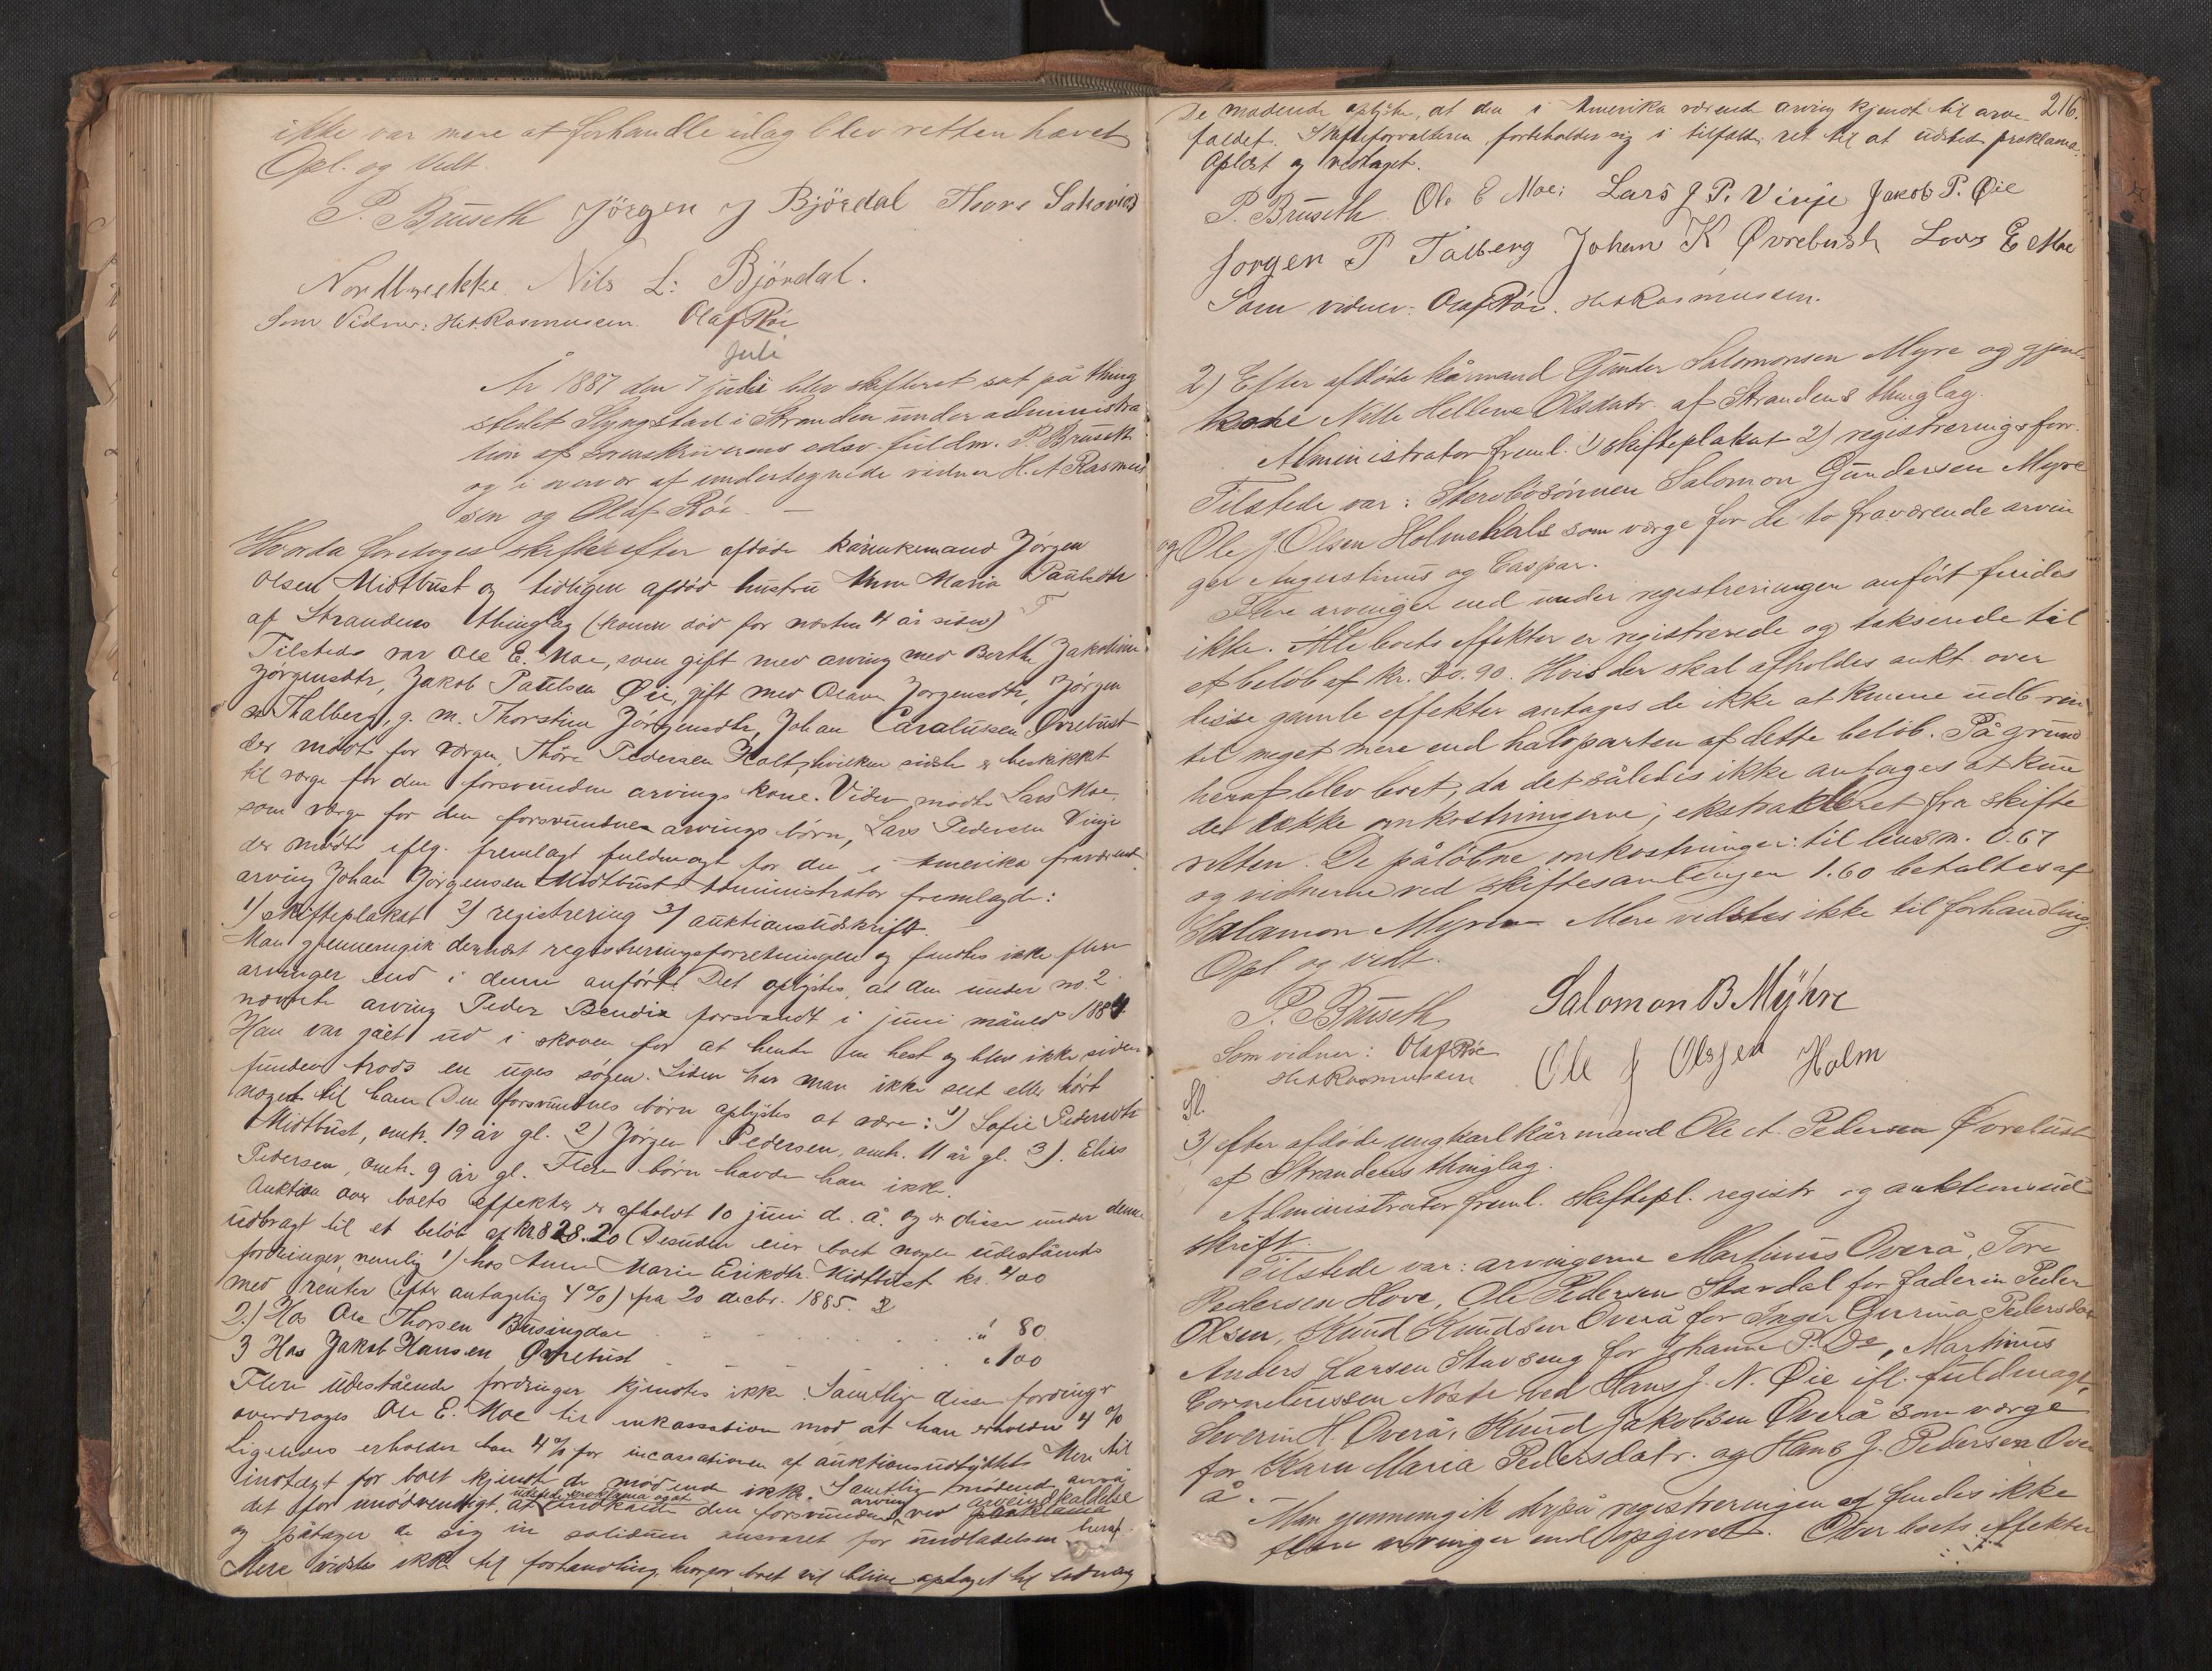 ikke var mere at forhandle idag blev retten hævet
Opl. og Vedt.
P. Bruseth Jörgen J Björdal Thore
Nordbrekke. Nils L: Björdal.
Som Vidner: H A Rasmussen. Olaf Röe
Juli
År 1887 den 7 juli blev skifteret sat på thing
stedet Slyngstad i Stranden under administra
tion af sorenskriverens edsv. fuldm. P. Bruseth
og i overvær af undertegnede vidner H. A Rasmus
sen og Olaf Röe. —
Hvorda foretoges skifte efter afdöde kårenkemand Jörgen
Olsen Midtbust og tidligere afdöd hustru Anne Maria Paulsdtr
af Strandens thinglag (konen död for næsten 4 år siden)
Tilstede var Ole E. Moe, som gift med arving med Berthe Jakobine
Jörgensdtr, Jakob Paulsen Öie, gift med Olava Jorgensdtr, Jörgen
P Thalberg, g. m. Thorstine Jörgensdtr, Johan Caralussen Øvrebust
der mödte for værgen, Thöre Pedersen Holt, hvilken sidste er beskikket
til værge for den forsvundne arvings kone. Videre mödte Lars Moe,
som værge for den forsvundnes arvings börn, Lars Pedersen Vinje
der mödte iflg. fremlagt fuldmagt for den i Amerika fraværende
arving Johan Jörgensen Midtbust Administrator fremlagde:
1) skifteplakat 2) registrering 3) auktionsudskrift.
Man gjennemgik dernæst registreringsforretningen og fandtes ikke flere
arvinger end i denne anfört. Det oplystes, at den under no. 2
nævnte arving Peder Bendix forsvandt i juni måned 1884
Han var gået ud i skoven for at hente en hest og blev ikke siden
funden trods en uges sögen. Siden har man ikke seet eller hört
noget til ham Den forsvundnes börn oplystes at være: 1) Sofie Pedersdtr
Midtbust, omtr. 19 år gl. 2) Jörgen Pedersen, omtr. 11 år gl. 3). Elias
Pedersen, omtr. 9 år gl. Flere börn havde han ikke.
Auktion over boets effekter er afholdt 10 juni d. å. og er disse under denne
udbragt til et belöb af kr 828.20 Desuden eier boet nogle udestående
fordringer, nemlig 1) hos Anne Marie Eriksdtr. Midtbust kr. 400
med renter (efter antagelig 4%) fra 20 decbr. 1885.
2.) Hos Ole Thorsen Busingdal " 80
3 Hos Jakob Hansen Øvrebust " 100
Flere udestående fordringer kjendtes ikke. Samtlige disse fordringer
overdroges Ole E. Moe til inkassation mod at han erholder 4 %
Ligeledes erholder han 4% for incassationen af auktionsudbyttet. Mere til
indtægt for boet kjendte de mödende ikke. Samtlige mödende anså
det for unödvendigt, at udstede proklama og at indkalde den forsvundne arving ved proklama arveindkaldelse
og påtager de sig in solidum ansvaret for undladelsen heraf.
Mere vidstes ikke til forhandling, hvorfor boet vil blive optaget til lodning
216.
De mødende oplyste, at den i Amerika værende arving kjendt til arve
faldet. Skifteforvalteren forbeholder sig i tilfælde ret til at udstede proklama.
Oplæst og vedtaget.
P. Bruseth. Ole E Moe: Lars J P. Vinje Jakob P. Øie
Jorgen P Talberg Johan K Øvrebust Lars E Moe
Som vidner: Olaf Röe. H A Rasmussen.
2) Efter afdöde kårmand Gunder Salomonsen Myre og gjenl.
kone Nille Hellene Olsdatr. af Strandens thinglag.
Administrator freml. 1) Skifteplakat 2) registreringsforr.
Tilstede var: Stervbösönnen Salomon Gundersen Myre
og Ole J. Olsen Holmehals som værge for de to fraværende arvin
ger Augustinus og Caspar.
Flere arvinger end under registreringen anfört findes
ikke. Alle boets effekter er registrerede og takserede til
et belöb af kr. 30.90. Hvis der skal afholdes aukt. over
disse gamle effekter antages de ikke at kunne udbrin
til meget mere end halvparten af dette belöb. På grund
heraf blev boet, da det således ikke antages at kun
de dække omkostningerne, ekstraderet fra skifte
retten. De pålöbne omkostninger: til lensm. 0.67
og vidnerne ved skiftesamlingen 1.60 betaltes af
Salamon Myre Mere vidstes ikke til forhandling.
Opl. og vedt.
P. Bruseth Salomon B Mÿhre
Som vidner: Olaf Röe Ole J Olssen Holm
H A Rasmussen
Sl.
3) efter afdöde ungkarl kårmand Ole A. Pedersen Øvrebust
af Strandens thinglag.
Administrator freml. skiftepl. registr. og auktionsud
skrift.
Tilstede var: arvingerne Martinus Overå, Tore
Pedersen Hove, Ole Pedersen Stavdal for faderen Peder
Olsen, Knud Knudsen Overå for Inger Gurina Pedersdatr
Anders Larsen Stavseng for Johanne P. Do, Martinus
Corneliussen Nöste ved Hans J. N. Øie ifl. fuldmagt,
Severin H. Overå, Knud Jakobsen Överå som værge
for Karn Maria Pedersdatr. og Hans J. Pedersen Over
å.
Man gjennemgik derpå registreringen og fandtes ikke
flere arvinger end opgivet. Over boets effekter